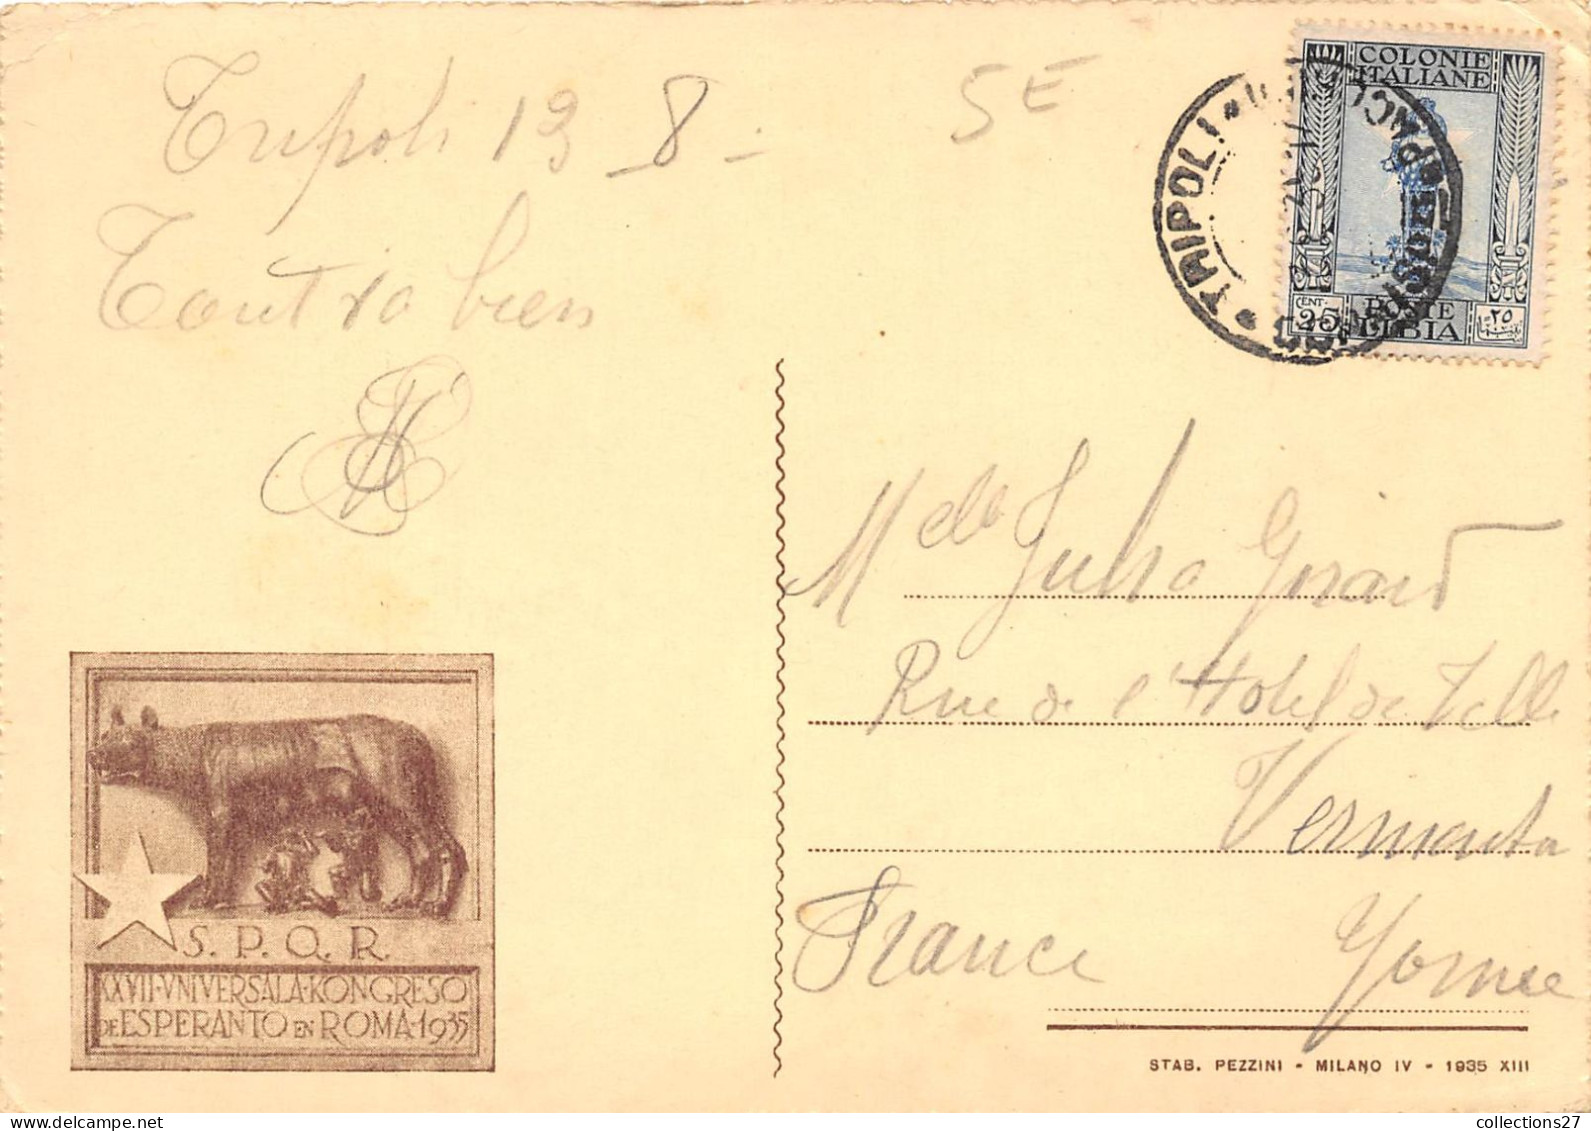 Tripoli 13-8-
Tout va bien
5E
COLONIE
ITALIANE
CENT.
25
POSTE
LIBIA
٢٥
TRIPOLI
Melle Julia Girard
Rue de l'Hotel de Ville
Vermenton
France Yonne
S.P.Q.R.
XXVII·VNIVERSALA·KONGRESO
DE ESPERANTO EN ROMA·1935
STAB. PEZZINI - MILANO IV - 1935 XIII
collections27